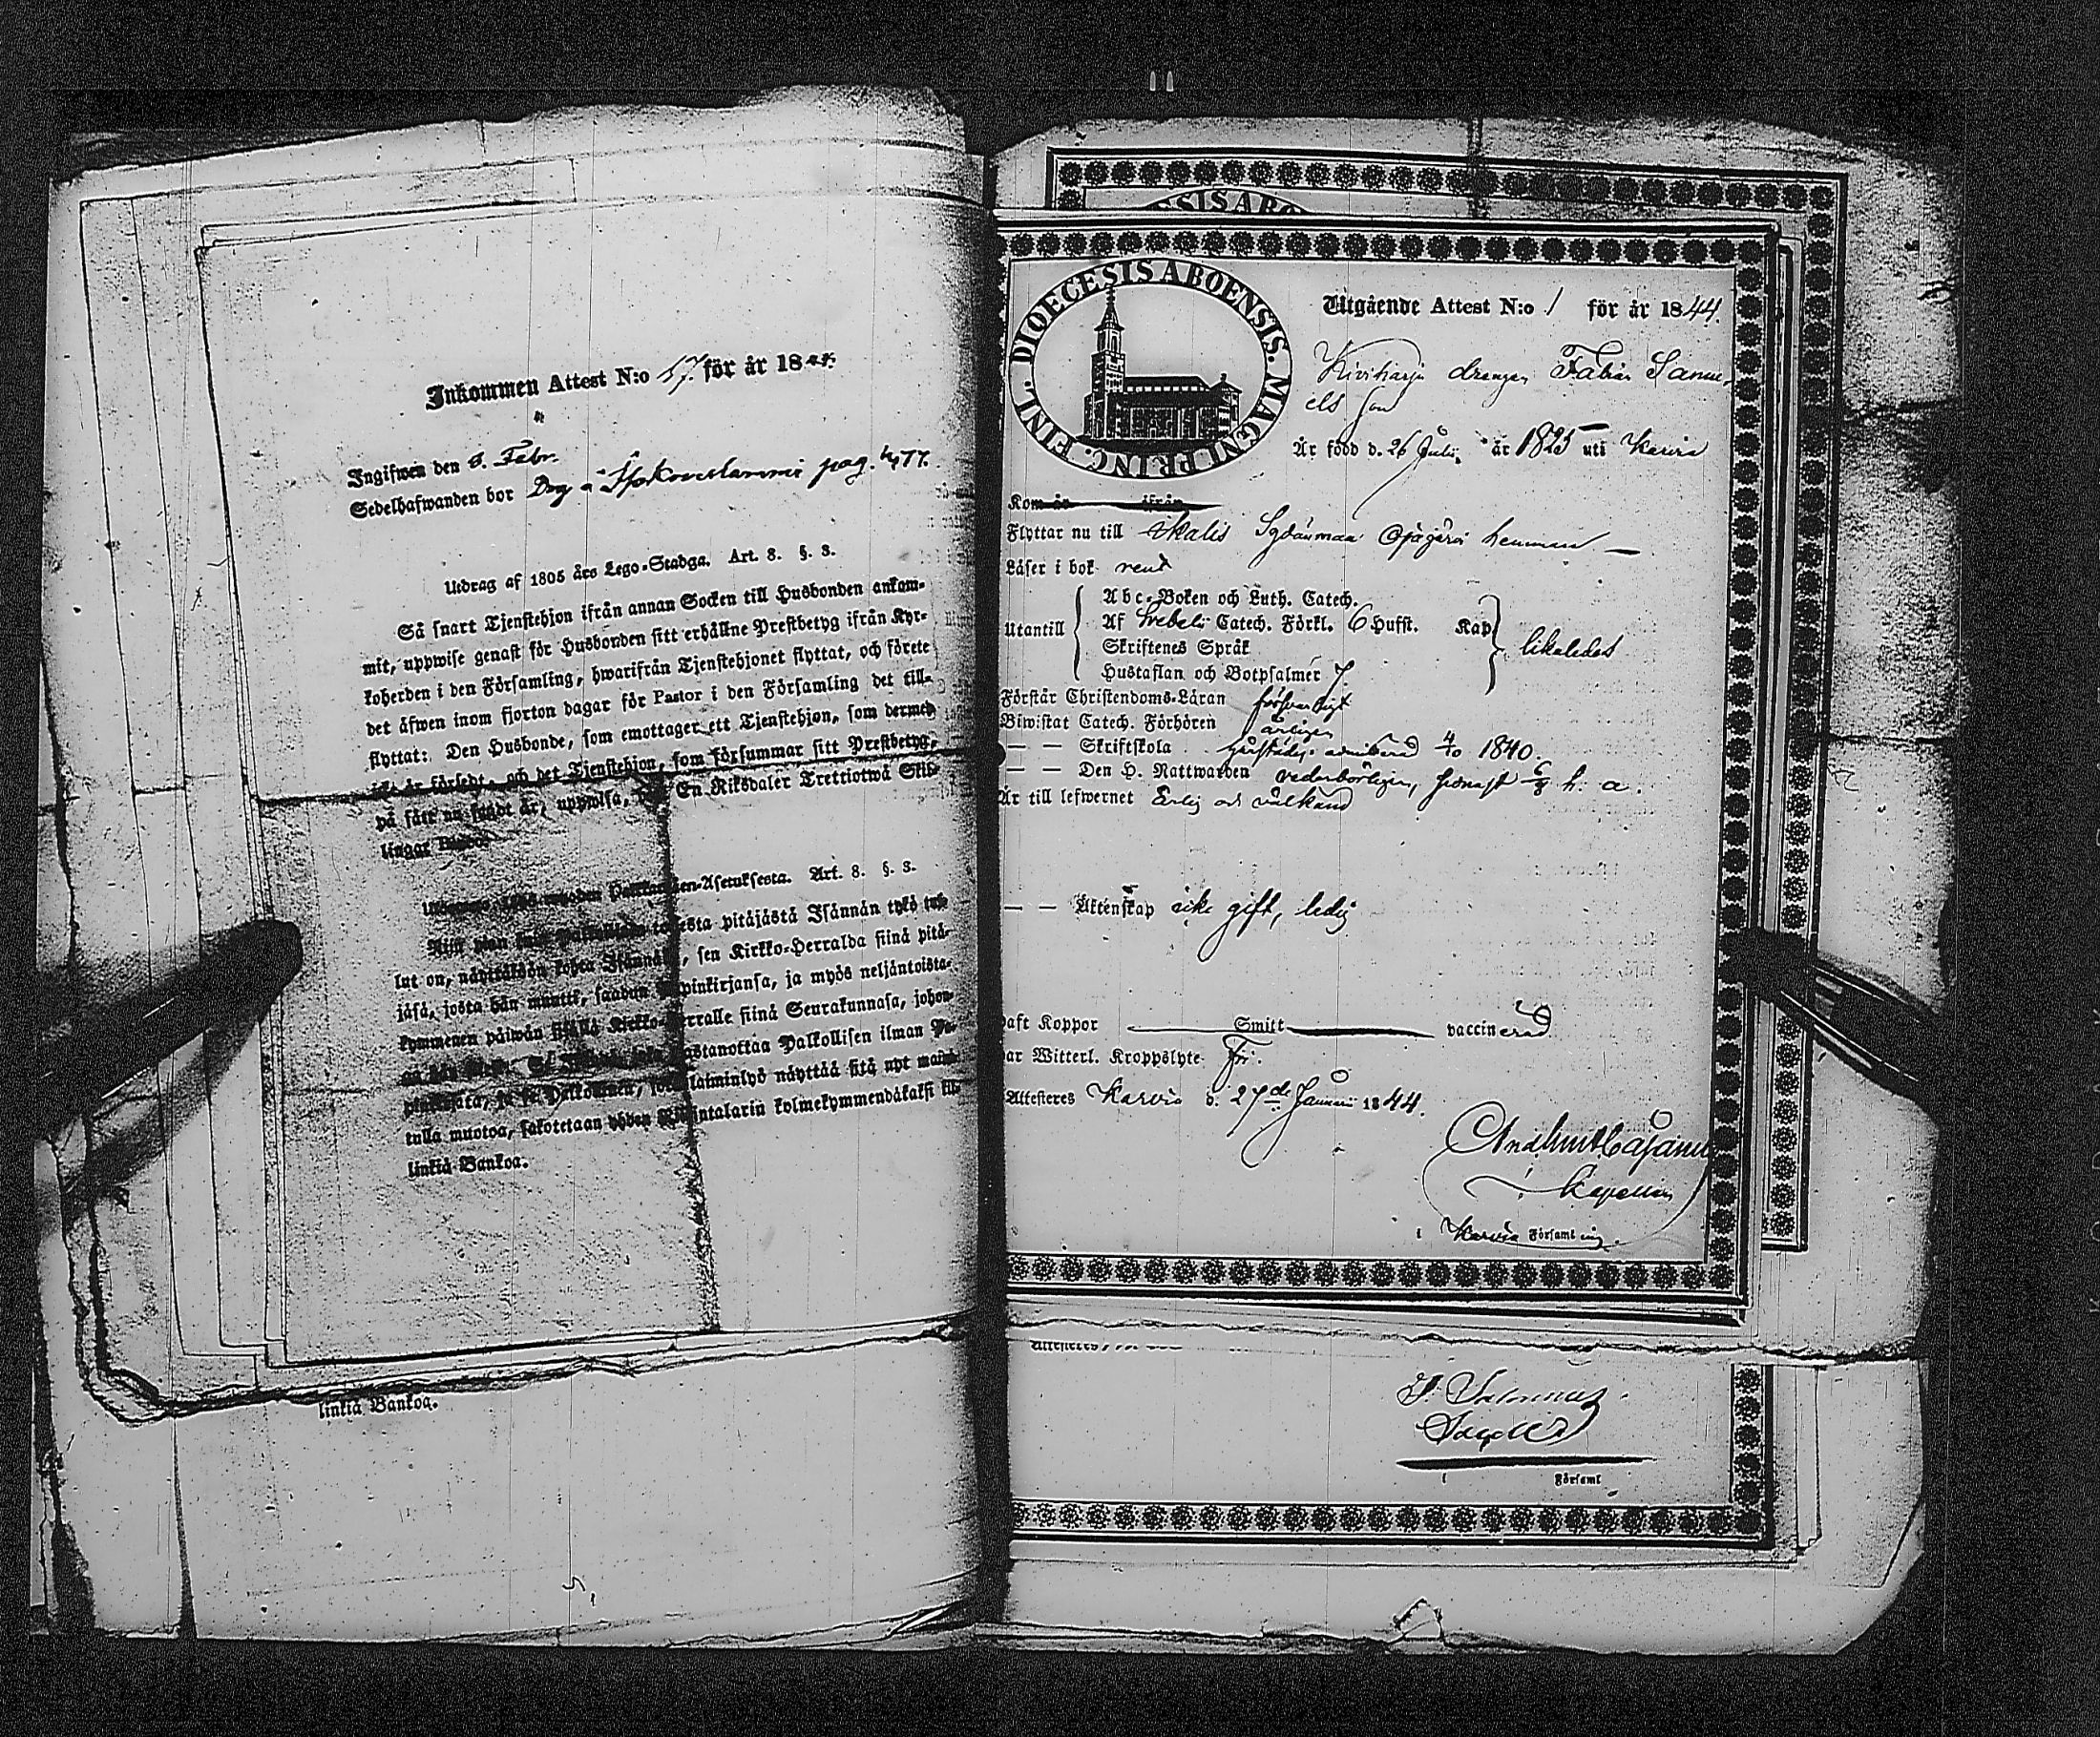 Inkommen Attest N:o 57. för år 1844.
Ingifwen den 8. Febr.
Sedelhafwanden bor Drg å pag. 477.
Utdrag af 1805 års Lego-Stadga. Art. 8. §. 3.
Så snart Tjenstehjon ifrån annan Socken till Husbonden ankom-
mit, uppwise genast för Husbonden sitt erhållne Prestbetyg ifrån Kyr-
koherden i den Församling, hwarifrån Tjenstehjonet flyttat, och förete
det äfwen inom fjorton dagar för Pastor i den Församling det till-
flyttat: Den Husbonde, som emottager ett Tjenstehjon, som dermed
icke är försedt, och det Tjenstehjon, som försummar sitt Prestbetyg,
på sätt nu sagdt är, uppwisa, En Riksdaler Trettiotwå Skil-
lingar Banco.
Palkollisten-Asetuksesta. Art. 8. §. 3.
toisesta pitäjästä Isännän tykö tul-
lut on, näyttäköön kohta Isännälle, sen Kirkko-Herralda siinä pitä-
jäsä, josta hän muutti, saadun Papinkirjansa, ja myös neljäntoista-
kymmenen päiwän sisällä Kirkko-Herralle siinä Seurakunnasa, johon-
wastanottaa Palkollisen ilman Pa-
pinkirjata, ja se Palkollinen, joka laiminlyö näyttää sitä nyt maini-
tulla muotoa, sakotetaan yhden Riksintalarin kolmekymmendäkaksi kil-
linkiä Bankoa.
linkiä Bankoa.
DIOECESIS ABOENSIS. MAGNI PRINC. FINL.
Utgående Attest N:o 1 för år 1844.
Kiviharju drängen Fabian Samu-
els son
Är född d. 26 Julii år 1825 uti Karvia
Kom år ifrån
Flyttar nu till Ikalis Sydänmaa hemman
Läser i bok rent
Utantill
Abc-Boken och Luth. Catech.
Af Svebelii Catech. Förkl. 6 Hufst. Kap
Skriftenes Språk
Hustaflan och Botpsalmer 7.
likaledes
Förstår Christendoms-Läran försvarligt
Biwistat Catech. Förhören årligen
— — Skriftskola admitterad 4/10 1840.
— — Den H. Nattwarden vederbörligen, senast h. a.
Är till lefwernet Ärlig och välkänd
— — Äktenskap icke gift, ledig
Haft Koppor Smitt vaccinerad
Har Witterl. Kroppslyte Fri.
Attesteres Karvia d. 27de Januarii 1844.
Cajanus
Kapellan
i Karvia Församling.
SIS ABO
i Församl